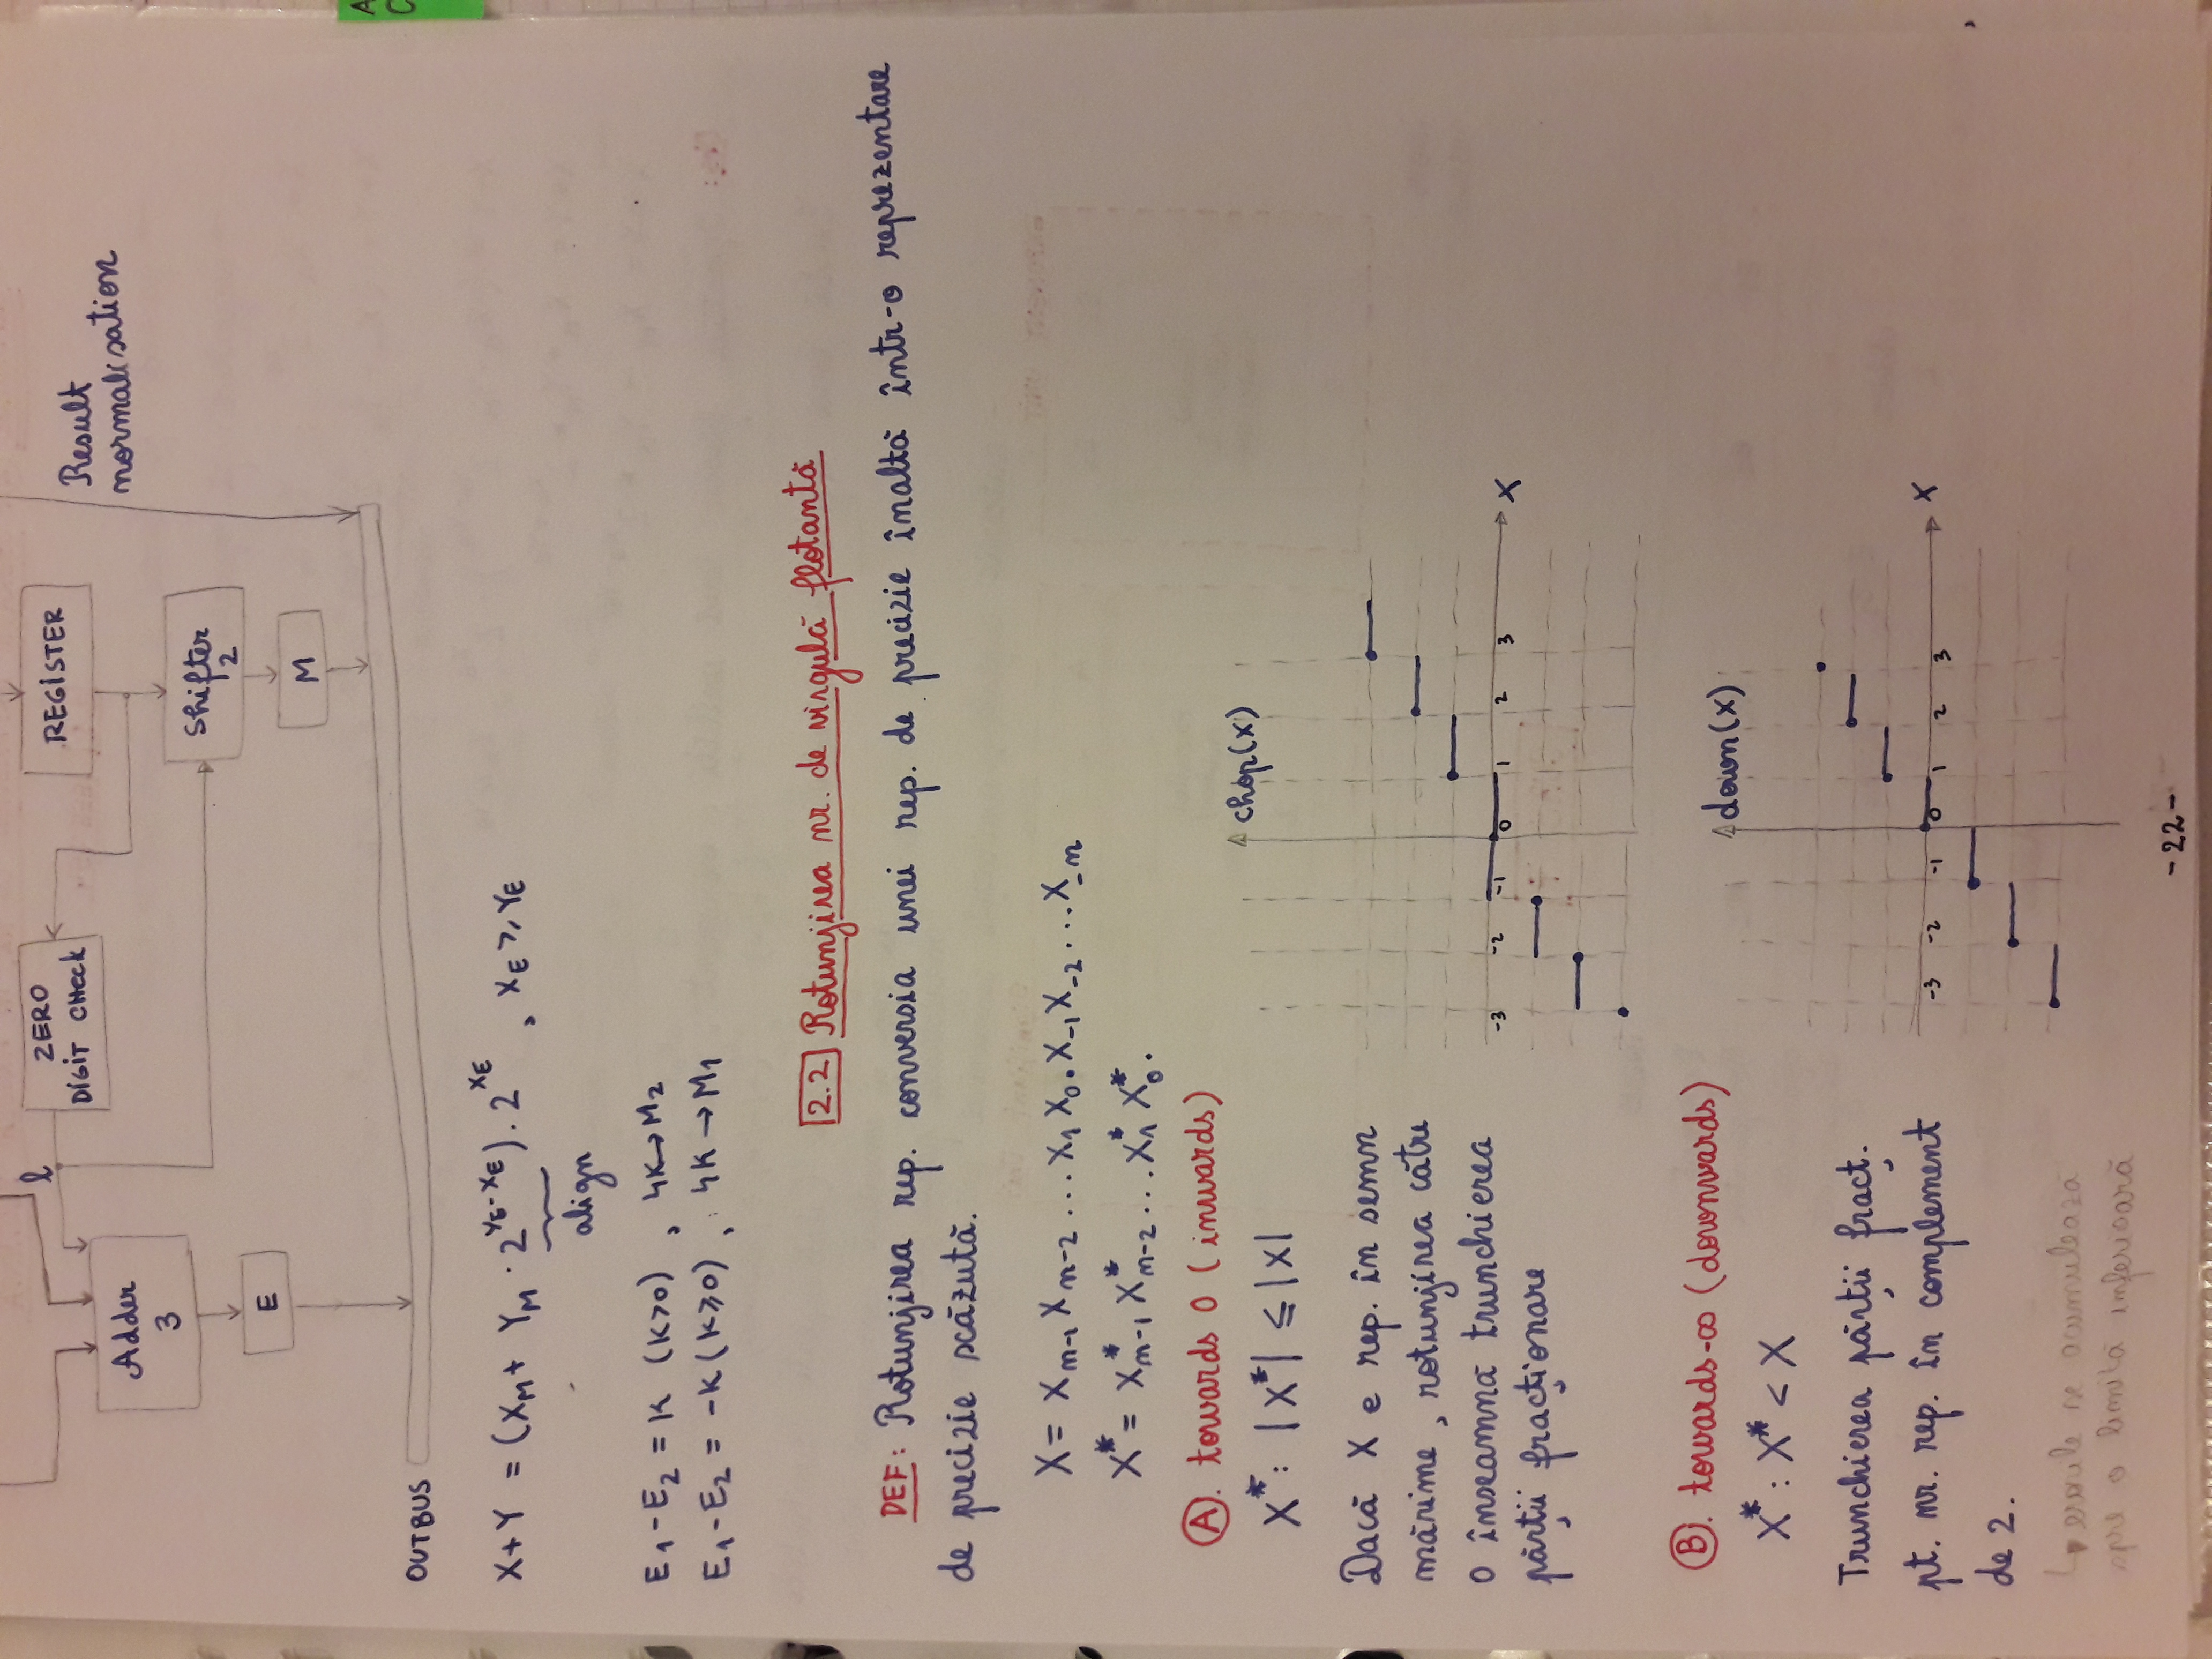 l
ZERO
DIGIT CHECK
REGISTER
Result
normalisation
Adder
3
Shifter
2
E
M
OUTBUS
X+Y = (X_M + Y_M · 2^(Y_E-X_E)) · 2^X_E , X_E ≥ Y_E
align
E₁-E₂ = K (K>0) , 4K→M₂
E₁-E₂ = -K (K≥0) , 4K→M₁
2.2 Rotunjirea nr. de virgulă flotantă
DEF: Rotunjirea rep. conversia unei rep. de precizie înaltă într-o reprezentare
de precizie scăzută.
X = X_n-1 X_n-2 ... X₁ X₀ . X_-1 X_-2 ... X_-n
X* = X*_n-1 X*_n-2 ... X*₁ X*₀ .
A. towards 0 (inwards)
X* : |X*| ≤ |X|
chop(X)
Dacă X e rep. în semn
mărime, rotunjirea către
0 înseamnă trunchierea
părții fracționare
-3 -2 -1 0 1 2 3 X
B. towards -∞ (downwards)
X* : X* < X
down(X)
Trunchierea părții fracț.
pt. nr. rep. în complement
de 2.
-3 -2 -1 0 1 2 3 X
↳ erorile se acumulează
spre o limită inferioară
-22-
A
C